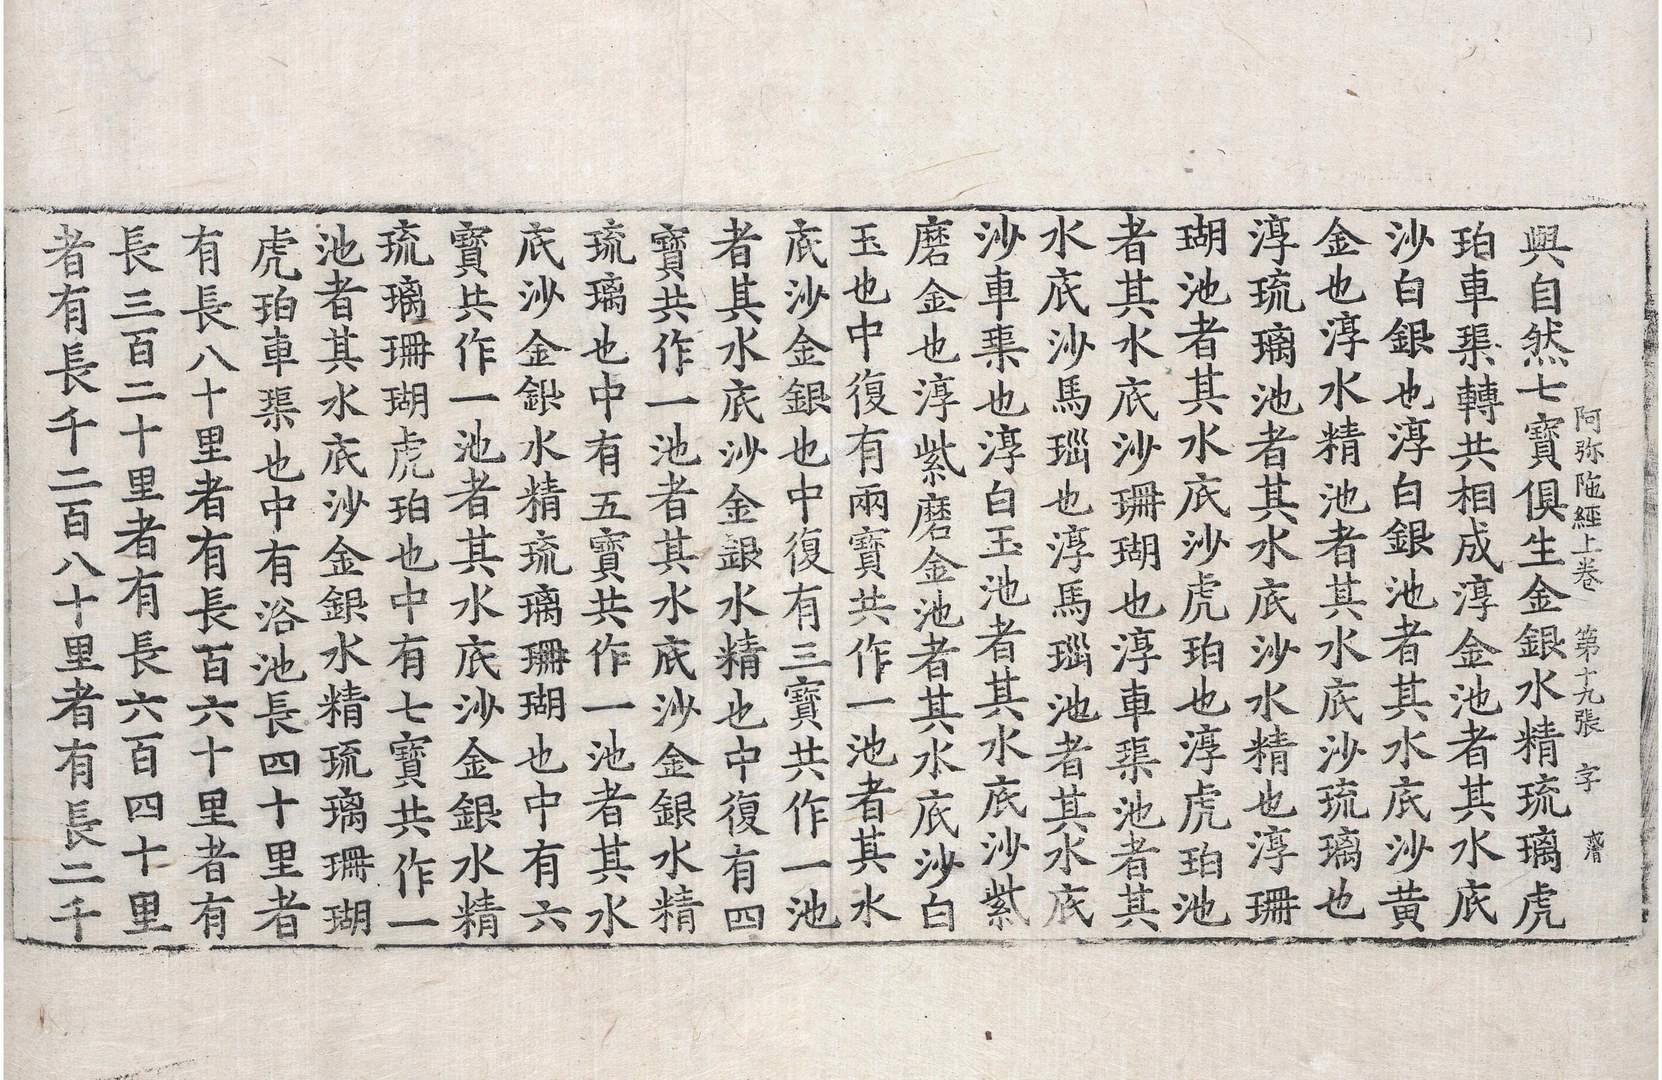 阿弥陁經上卷 第十九張 字
與自然七寶俱生金銀水精琉璃虎
珀車璖轉共相成淳金池者其水底
沙白銀也淳白銀池者其水底沙黄
金也淳水精池者其水底沙琉璃也
淳琉璃池者其水底沙水精也淳珊
瑚池者其水底沙虎珀也淳虎珀池
者其水底沙珊瑚也淳車璖池者其
水底沙馬瑙也淳馬瑙池者其水底
沙車璖也淳白玉池者其水底沙紫
磨金也淳紫磨金池者其水底沙白
玉也中復有兩寶共作一池者其水
底沙金銀也中復有三寶共作一池
者其水底沙金銀水精也中復有四
寶共作一池者其水底沙金銀水精
琉璃也中有五寶共作一池者其水
底沙金銀水精琉璃珊瑚也中有六
寶共作一池者其水底沙金銀水精
琉璃珊瑚虎珀也中有七寶共作一
池者其水底沙金銀水精琉璃珊瑚
虎珀車璖也中有浴池長四十里者
有長八十里者有長百六十里者有
長三百二十里者有長六百四十里
者有長千二百八十里者有長二千